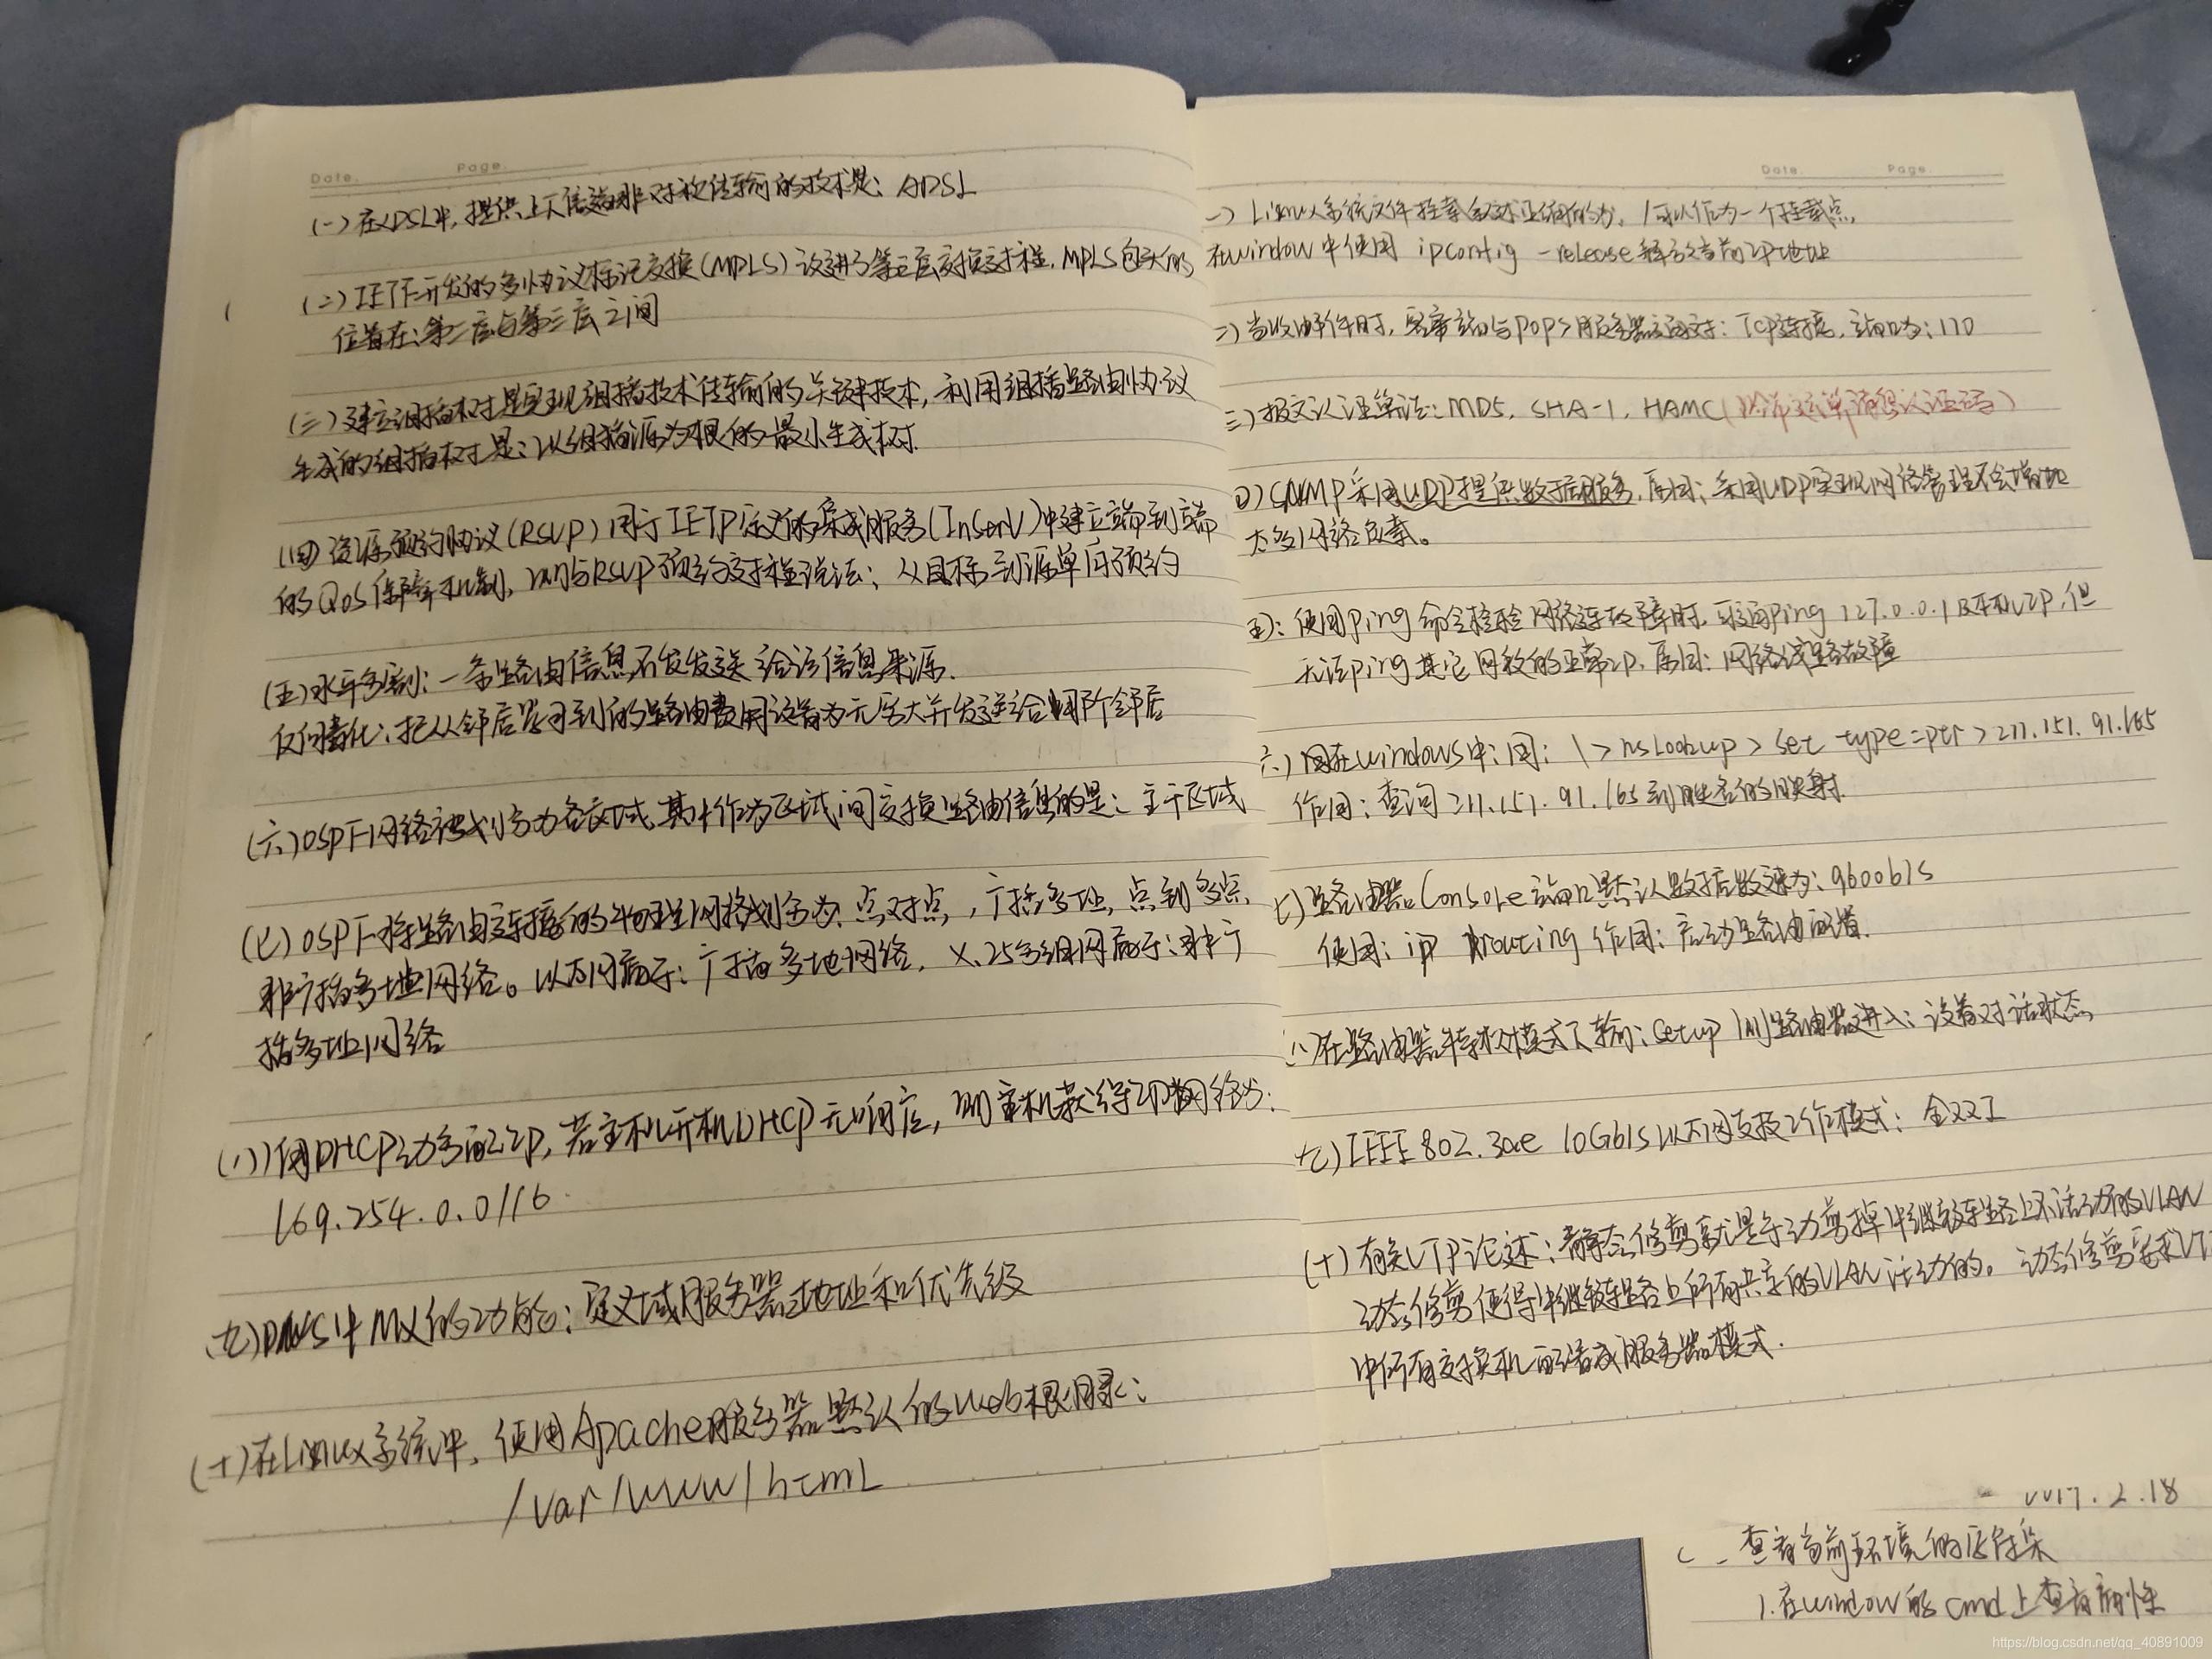 Date. Page.
(一)在xDSL中,提供上下信道非对称传输的技术是: ADSL
(二)IETF开发的多协议标记交换(MPLS)改进了第三层交换过程,MPLS包头的
位置在:第二层与第三层之间
(三)建立组播树是实现组播技术传输的关键技术,利用组播路由协议
生成的组播树是:以组播源为根的最小生成树.
(四)资源预约协议(RSVP)用于IETF定义的集成服务(InServ)中建立端到端
的QoS保障机制,则与RSVP预约过程说法:从目标到源单向预约
(五)水平分割:一条路由信息不发发送给该信息来源.
反向毒化:把从邻居学习到的路由费用设为无穷大并发送给那个邻居
(六)OSPF网络被划分为各区域,其中作为区域间交换路由信息的是:主干区域
(七)OSPF将路由连接的物理网络划分为:点对点,广播多址,点到多点,
非广播多址网络。以太网属于:广播多地网络,X.25分组网属于:非广
播多址网络
(八)用DHCP动分配IP,若主机开机DHCP无响应,则主机获得的网络为:
169.254.0.0/16
(九)DNS中MX的功能:定义域服务器地址和优先级
(十)在Linux系统中,使用Apache服务器默认的web根目录:
/var/www/html
Date. Page.
一) Linux系统文件挂载 /可以作为一个挂载点,
在window中使用 ipconfig -release释放当前IP地址
二)当收邮件时,客户端与POP3服务器通过:TCP连接,端口为:110
三)报文认证算法:MD5, SHA-1, HAMC(
四)SNMP采用UDP提供数据服务,原因:采用UDP实现网络管理不会增加
太多网络负素。
五):使用ping命令检验网络连故障时,可ping 127.0.0.1及本机IP,但
无法ping其它网段的正常IP,原因:网络线路故障
六)在windows中:用: \>nslookup > set type=ptr > 211.151.91.165
作用:查询211.151.91.165到域名的映射.
七)路由器Console端口默认数据数速为:9600b/s
使用:ip routing 作用:启动路由配置.
八)在路由器特权模式下输:setup 则路由器进入:设置对话状态
九)IEEE 802.3ae 10Gb/s以太网支持工作模式:全双工
(十)有关VTP论述:静态修剪就是手动剪掉中继链路上不活动的VLAN
动态修剪使得中继链路上所有共享的VLAN活动的。动态修剪要求VT
中所有交换机配置成服务器模式.
2017.2.18
查看当前环境的
1.在window的cmd上查看属性
https://blog.csdn.net/qq_40891009